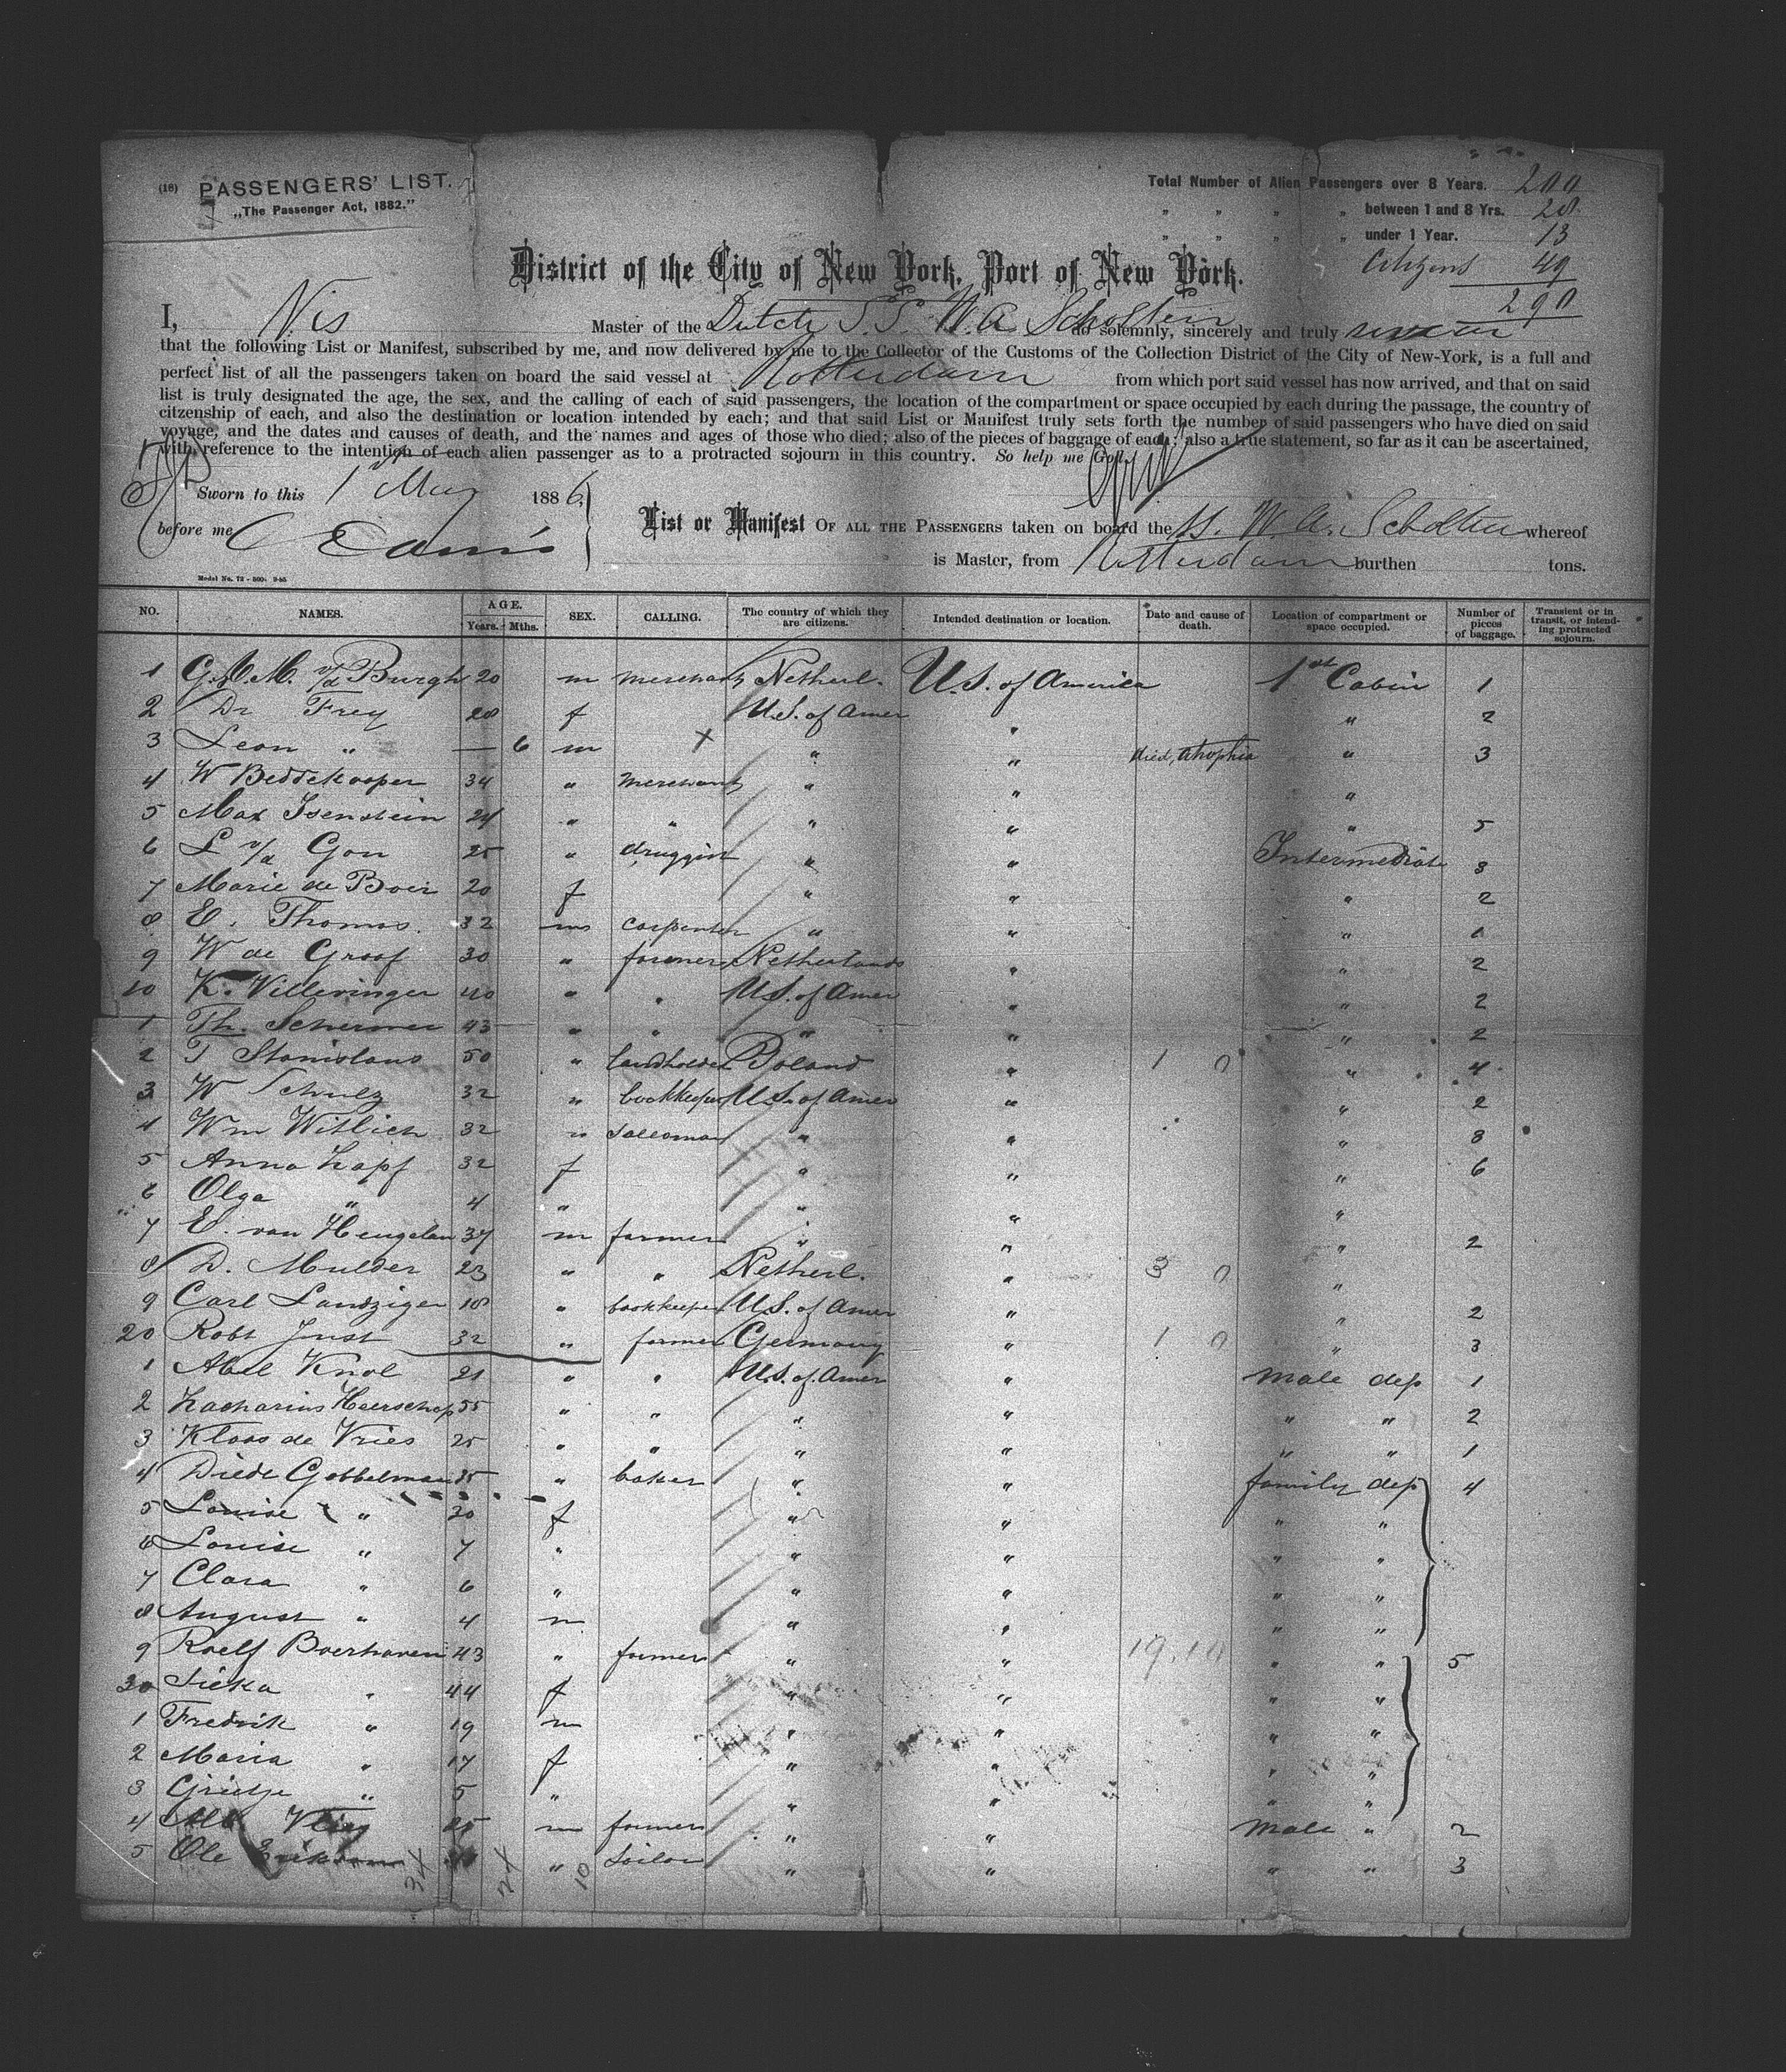 (18) PASSENGERS' LIST.
„The Passenger Act, 1882."
Total Number of Alien Passengers over 8 Years. 200
„ „ „ „ between 1 and 8 Yrs. 28
„ „ „ „ under 1 Year. 13
Citizens 49
290
District of the City of New York, Port of New York.
I, Nis Master of the Dutch S.S. W.A. Scholten do solemnly, sincerely and truly swear
that the following List or Manifest, subscribed by me, and now delivered by me to the Collector of the Customs of the Collection District of the City of New-York, is a full and
perfect list of all the passengers taken on board the said vessel at Rotterdam from which port said vessel has now arrived, and that on said
list is truly designated the age, the sex, and the calling of each of said passengers, the location of the compartment or space occupied by each during the passage, the country of
citzenship of each, and also the destination or location intended by each; and that said List or Manifest truly sets forth the number of said passengers who have died on said
voyage, and the dates and causes of death, and the names and ages of those who died; also of the pieces of baggage of each; also a true statement, so far as it can be ascertained,
with reference to the intention of each alien passenger as to a protracted sojourn in this country. So help me God.
Sworn to this 1st May 1886
before me
List or Manifest OF ALL THE PASSENGERS taken on board the SS. W.A. Scholten whereof
is Master, from Rotterdam burthen tons.
Model No. 72 - 500. 9-85
NO. NAMES. AGE. Years. Mths. SEX. CALLING. The country of which they are citizens. Intended destination or location. Date and cause of death. Location of compartment or space occupied. Number of pieces of baggage. Transient or in transit, or intending protracted sojourn.
1 G.M. v/d Burgh 20 m merchant Netherl. U.S. of America 1st Cabin 1
2 Dr Frey 28 f U.S. of Amer " " 2
3 Leon " — 6 m x " " died, atrophia " 3
4 W Beddekooper 34 " merchant " " "
5 Max Isenstein 24 " " " " " 5
6 L v/d Gon 25 " druggist " " Intermediate 3
7 Marie de Boer 20 f " " " 2
8 E. Thomas. 32 m carpenter " " " 1
9 W de Graaf 30 " farmer Netherlands " " 2
10 K. Villeringer 40 " " U.S. of Amer " " 2
1 Th. Schermer 43 " " " " " 2
2 T Stanislaus 50 " landholder Poland " 1 0 " 4
3 W Schulz 32 " bookkeeper U.S. of Amer " " 2
4 Wm Witlich 32 " salesman " " " 3
5 Anna Zapf 32 f " " " 6
6 Olga " 4 " " " "
7 E. van Hengelan 37 m farmer " " " 2
8 D. Mulder 23 " " Netherl. " 3 0 "
9 Carl Landziger 18 " bookkeeper U.S. of Amer " " 2
20 Robt Just 32 " farmer Germany " 1 0 " 3
1 Abel Knol 21 " " U.S. of Amer " Male dep 1
2 Zacharius Heerschop 55 " " " " " " 2
3 Klaas de Vries 25 " " " " " " 1
4 Diede Gobbelman 35 " baker " " family dep 4
5 Louise " 30 f " " " "
6 Louise " 7 " " " " "
7 Clara " 6 " " " " "
8 August " 4 m " " " "
9 Roelf Boerhaven 43 " farmer " " 19.10 " " 5
30 Sieka " 44 f " " " "
1 Fredrik " 19 m " " " "
2 Maria " 17 f " " " "
3 Grietje " 5 " " " " "
4 Vlieg 25 m farmer " " Male " 2
5 Ole " sailor " " " " 3
34 24 10